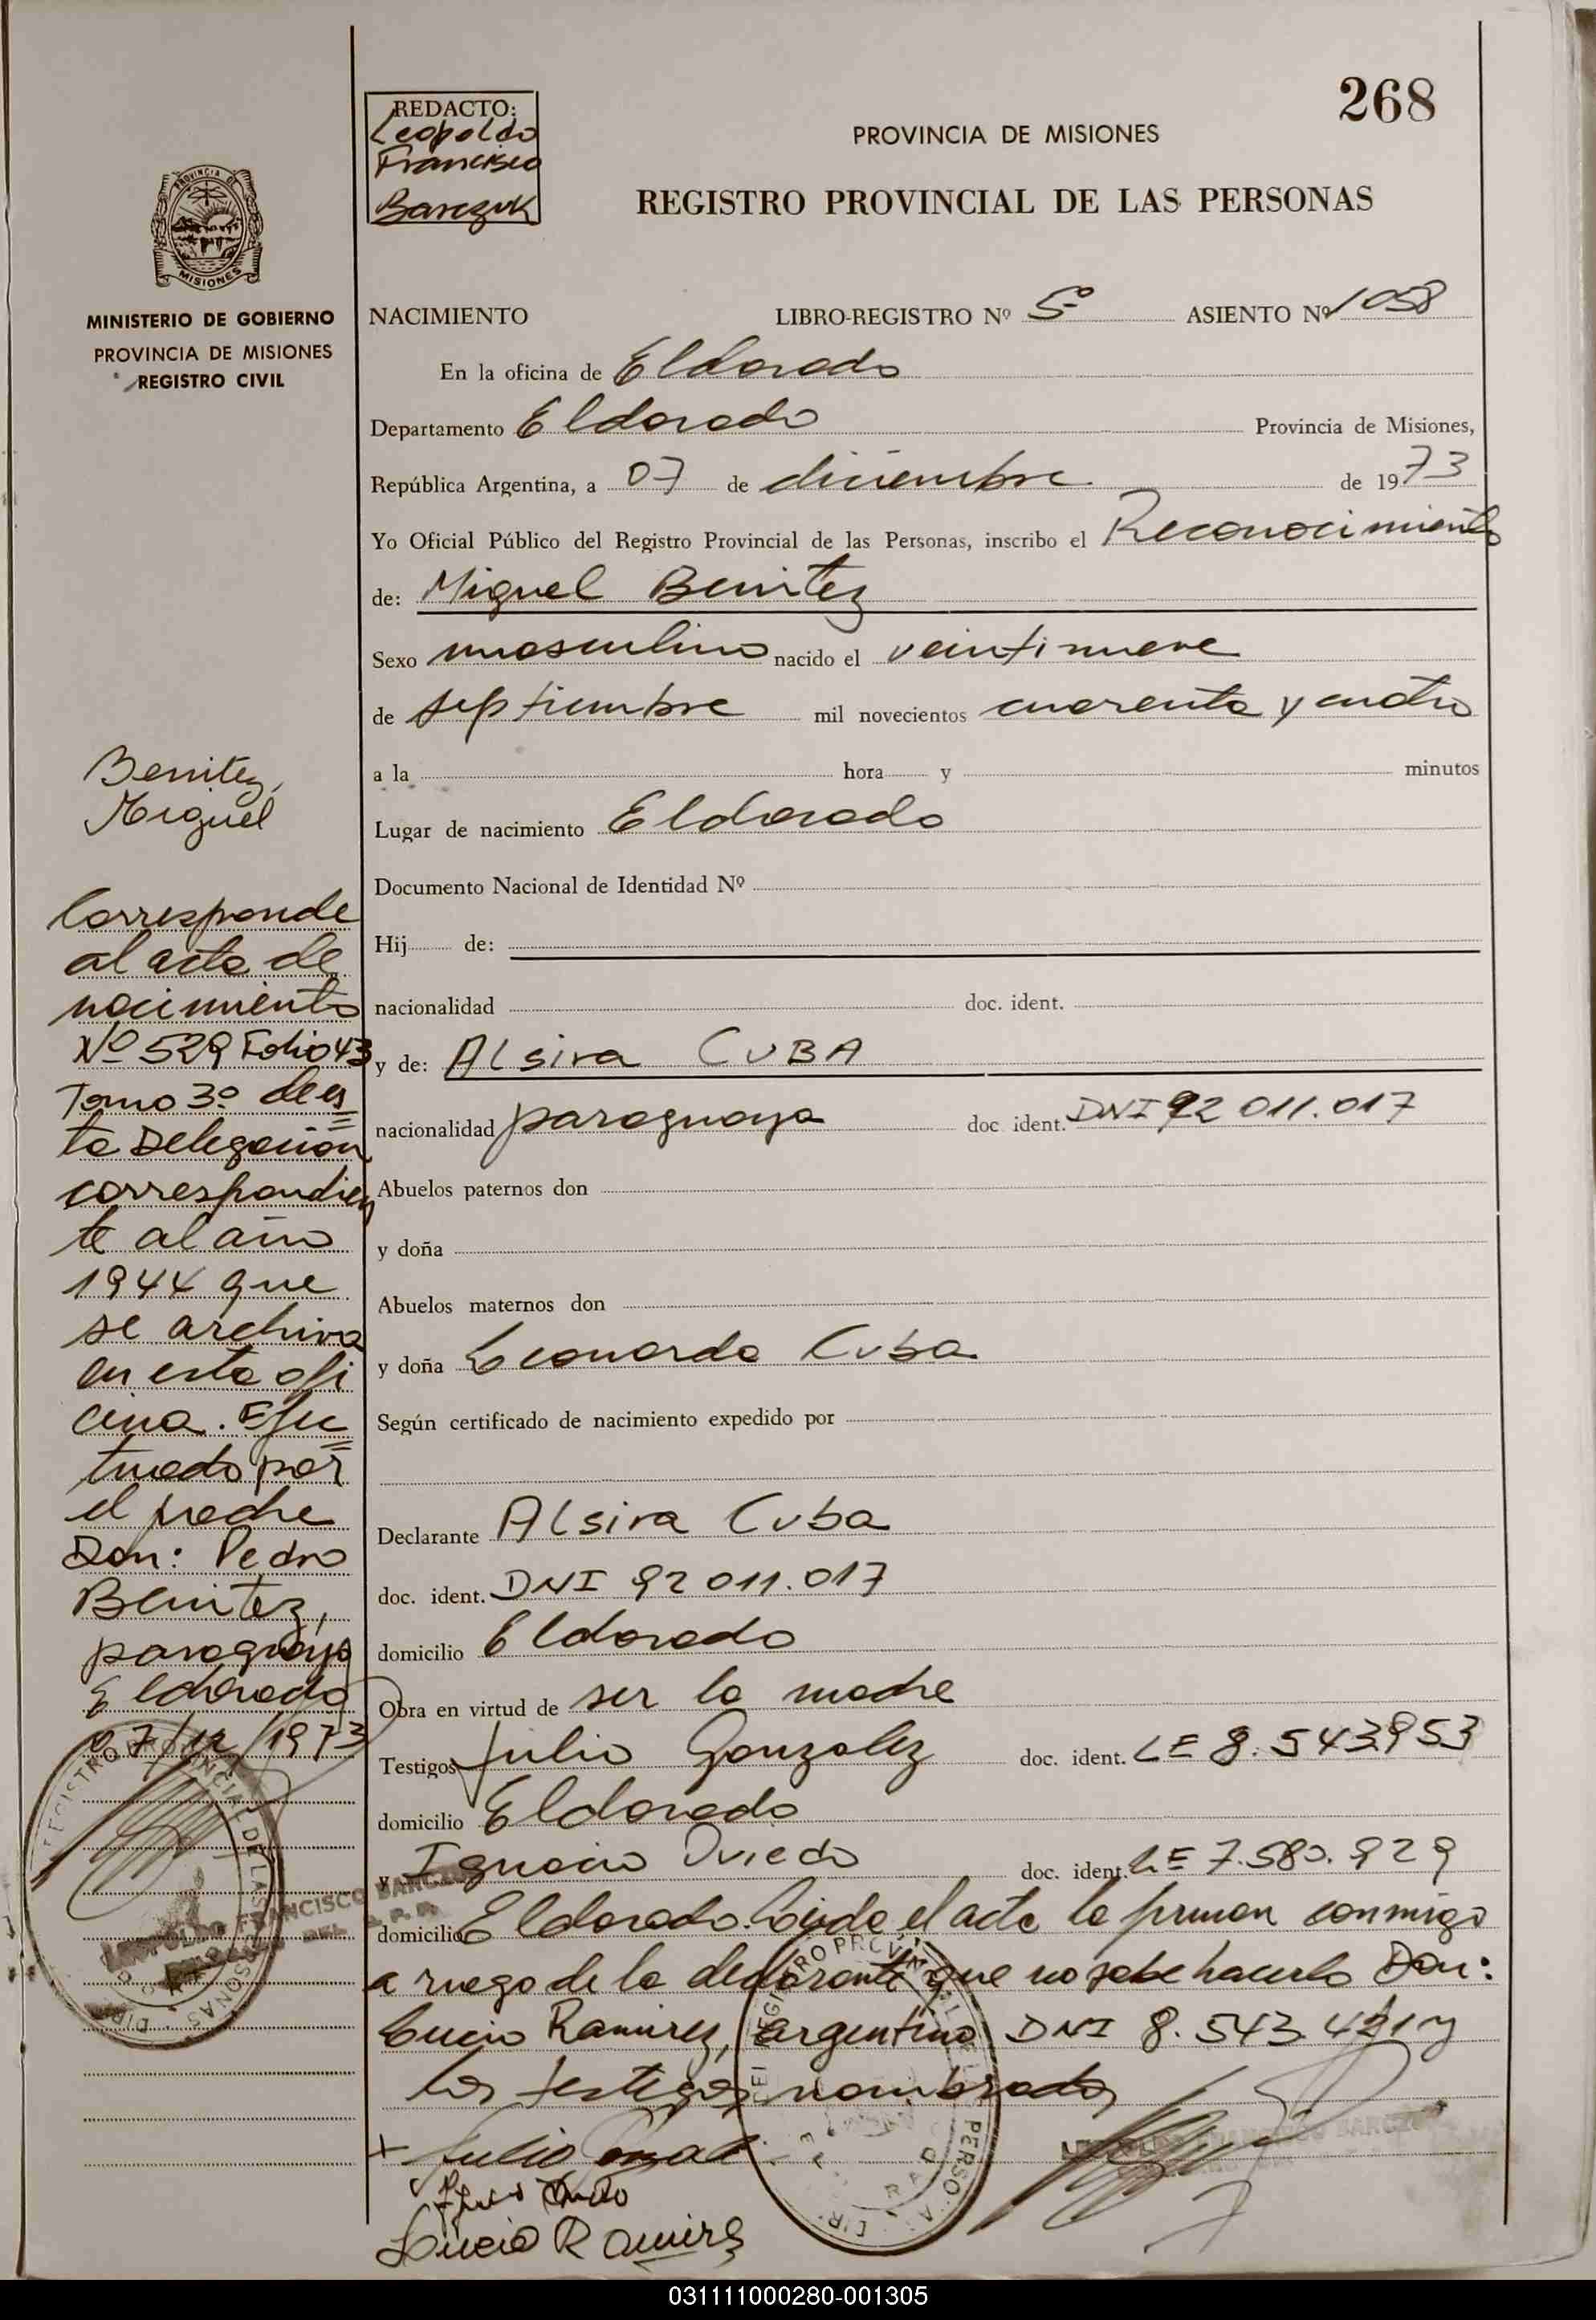 268
REDACTO:
Leopoldo
Francisco
Barczuk
PROVINCIA DE MISIONES
REGISTRO PROVINCIAL DE LAS PERSONAS
PROVINCIA DE
MISIONES
MINISTERIO DE GOBIERNO
PROVINCIA DE MISIONES
REGISTRO CIVIL
NACIMIENTO LIBRO-REGISTRO Nº 5º ASIENTO Nº 1058
En la oficina de Eldorado
Departamento Eldorado Provincia de Misiones,
República Argentina, a 07 de diciembre de 1973
Yo Oficial Público del Registro Provincial de las Personas, inscribo el Reconocimiento
de: Miguel Benitez
Sexo masculino nacido el veintinueve
de septiembre mil novecientos cuarenta y cuatro
a la hora y minutos
Lugar de nacimiento Eldorado
Documento Nacional de Identidad Nº
Hij de:
nacionalidad doc. ident.
y de: Alsira CUBA
nacionalidad paraguaya doc ident. DNI 92 011.017
Abuelos paternos don
y doña
Abuelos maternos don
y doña Leonarda Cuba
Según certificado de nacimiento expedido por
Declarante Alsira Cuba
doc. ident. DNI 92 011.017
domicilio Eldorado
Obra en virtud de ser la madre
Testigos Julio Gonzalez doc. ident. LE 8.543.953
domicilio Eldorado
y Ignacio Oviedo doc. ident. LE 7.580.929
domicilio Eldorado. Leida el acta la firman conmigo
a ruego de la declarante que no sabe hacerlo Don:
Lucio Ramirez, argentino DNI 8.543.421 y
los testigos nombrados
Julio Gonzal
Lucio Ramirez
Benitez,
Miguel
Corresponde
al acta de
nacimiento
Nº 529 Folio 43
Tomo 3º de es
ta Delegacion
correspondien
te al año
1944 que
se archiva
en esta ofi
cina. Efec
tuado por
el padre
Don: Pedro
Benitez,
paraguayo
Eldorado
07/12/1973
REGISTRO PROVINCIAL DE LAS PERSONAS
LEOPOLDO FRANCISCO BARCZUK
031111000280-001305